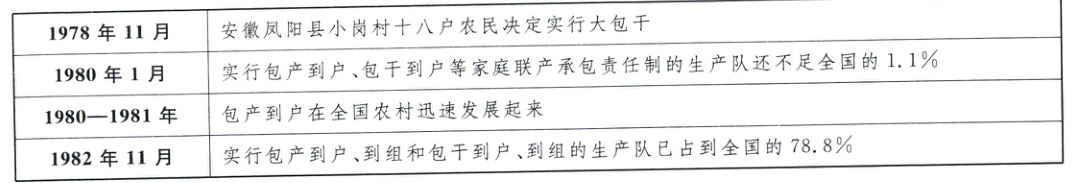 1978 年 11 月 安徽凤阳县小岗村十八户农民决定实行大包干
1980 年 1 月 实行包产到户、包干到户等家庭联产承包责任制的生产队还不足全国的 1.1%
1980—1981 年 包产到户在全国农村迅速发展起来
1982 年 11 月 实行包产到户、到组和包干到户、到组的生产队已占到全国的 78.8%